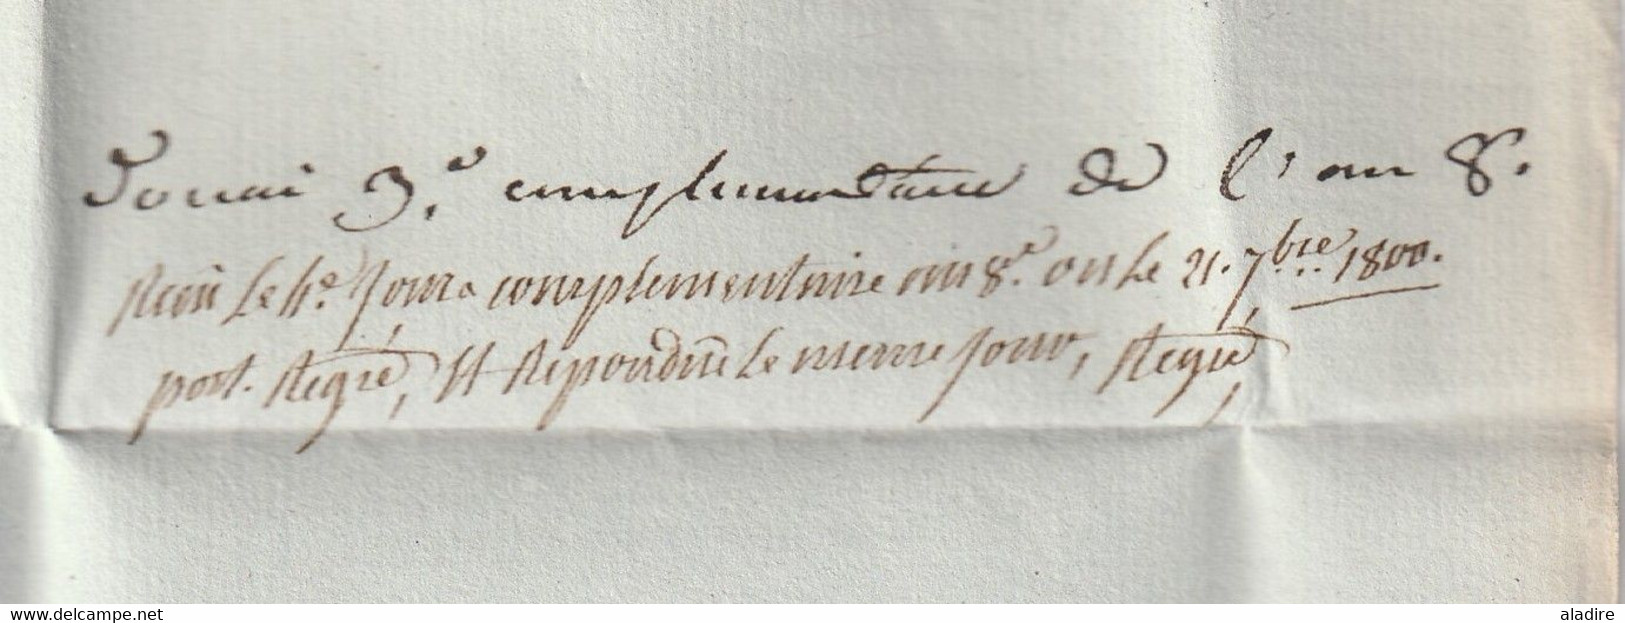 Douai 3.e complementaire de l'an 8.
Recu Le 4.e Jour complementaire an 8.e ou Le 21. 7bre 1800.
port. Regié, & Repondue Le meme Jour, Regié
www.delcampe.net
aladire